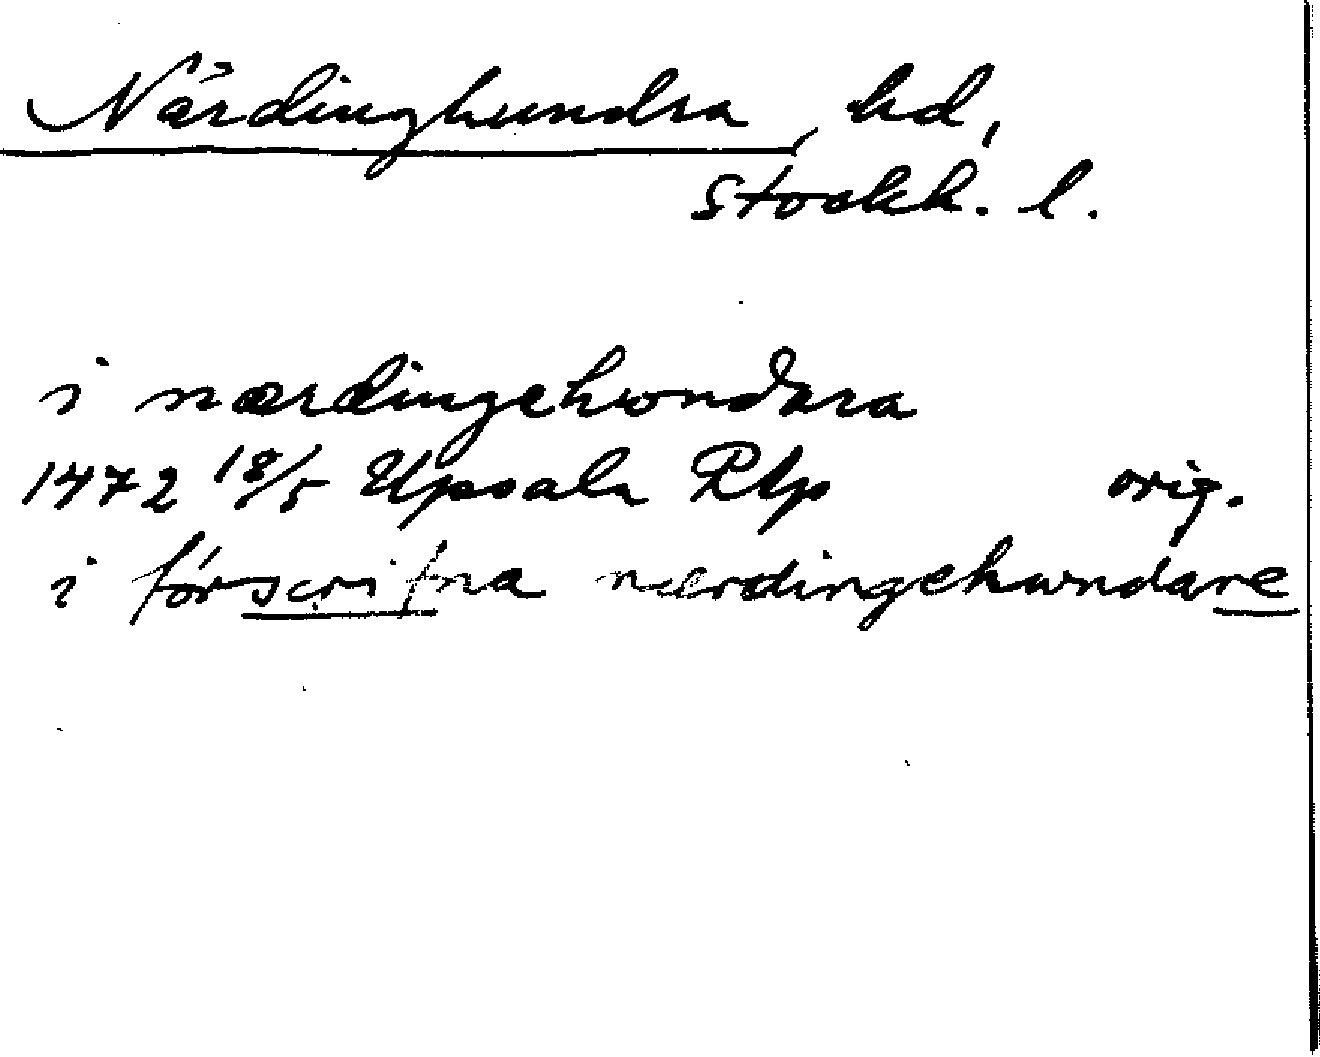 Närdinghundra, hd,
Stockh. l.
i nærdingehwndara
1472 18/5 Upsala RAp orig.
i förscrifna nærdingehwndare